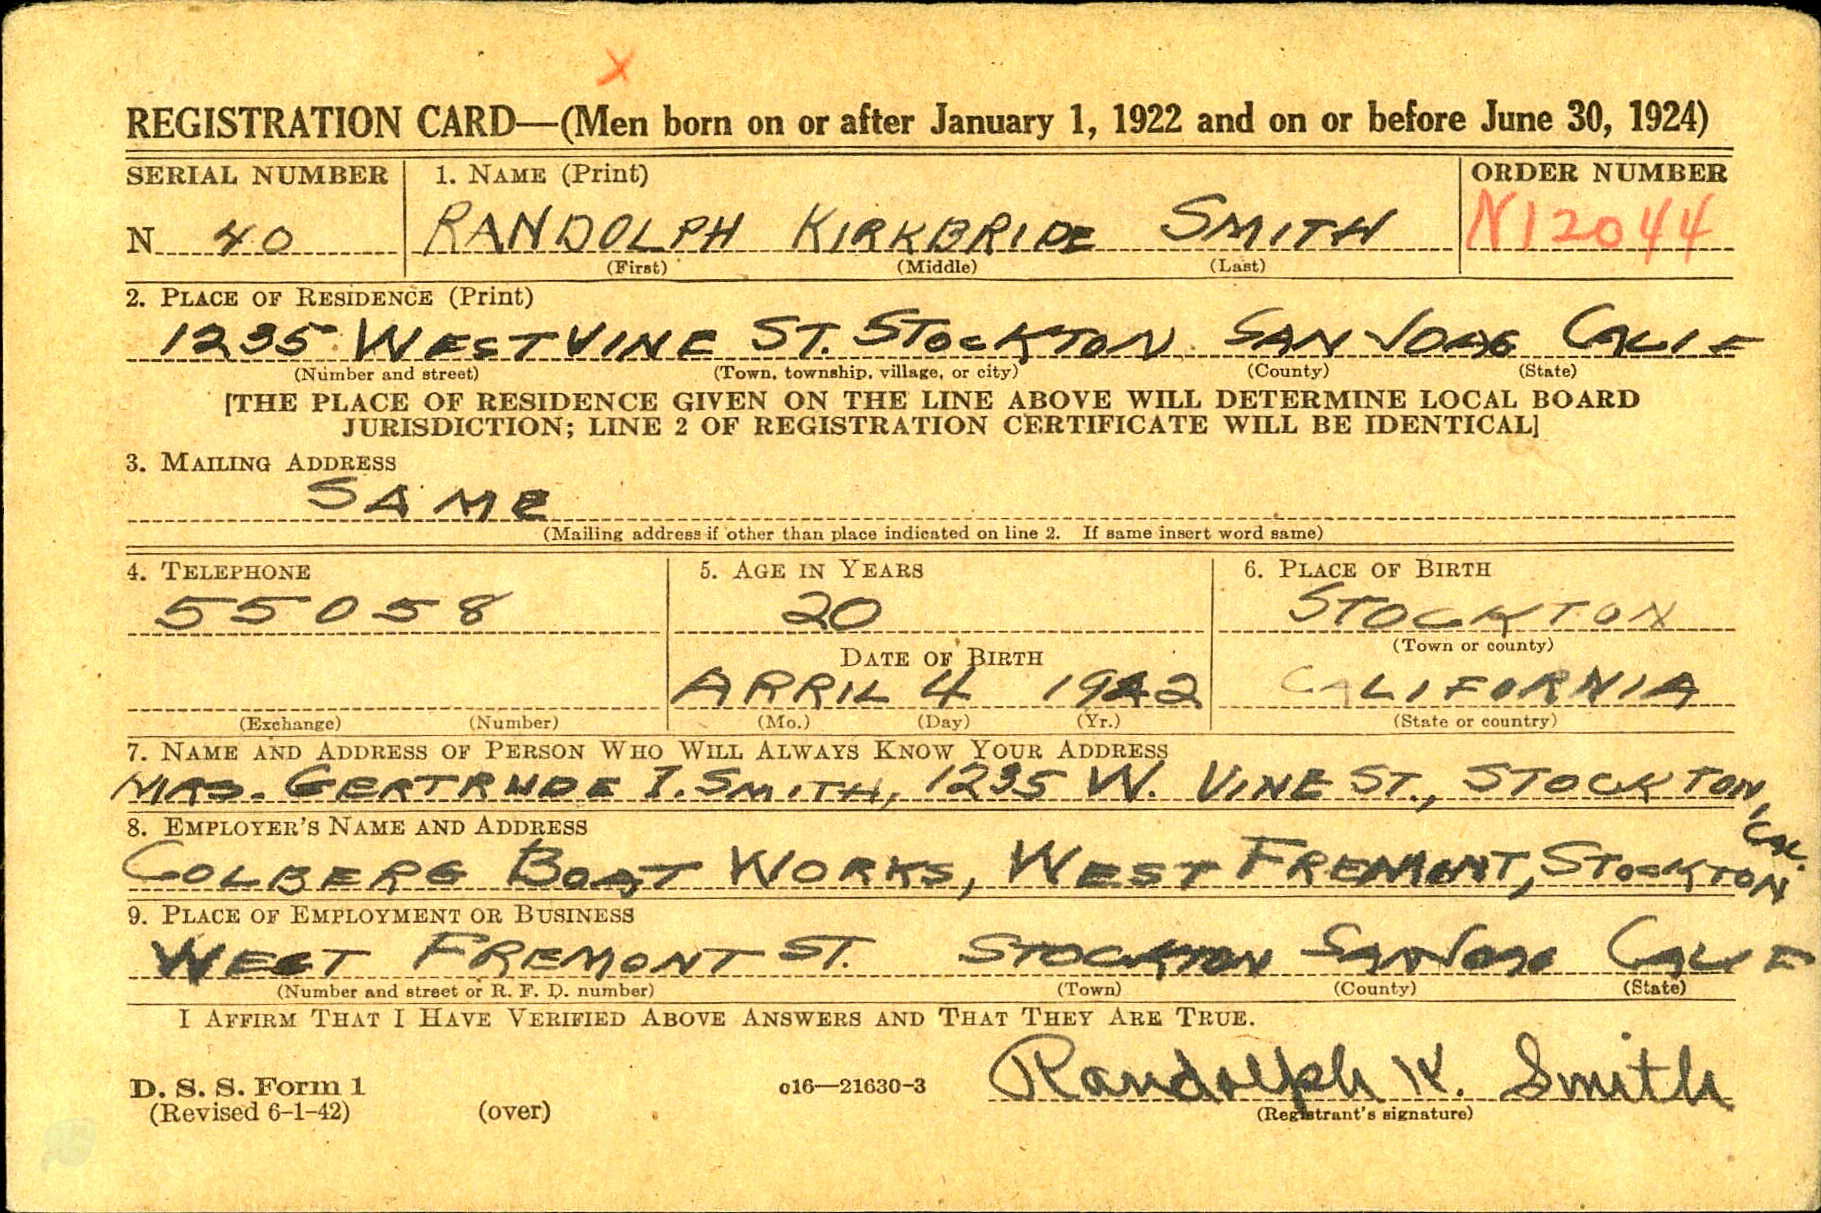 X
REGISTRATION CARD—(Men born on or after January 1, 1922 and on or before June 30, 1924)
SERIAL NUMBER 1. NAME (Print) ORDER NUMBER
N 40 RANDOLPH KIRKBRIDE SMITH N12044
(First) (Middle) (Last)
2. PLACE OF RESIDENCE (Print)
1235 WEST VINE ST. STOCKTON SAN JOAQ CALIF
(Number and street) (Town, township, village, or city) (County) (State)
[THE PLACE OF RESIDENCE GIVEN ON THE LINE ABOVE WILL DETERMINE LOCAL BOARD
JURISDICTION; LINE 2 OF REGISTRATION CERTIFICATE WILL BE IDENTICAL]
3. MAILING ADDRESS
SAME
(Mailing address if other than place indicated on line 2. If same insert word same)
4. TELEPHONE 5. AGE IN YEARS 6. PLACE OF BIRTH
55058 20 STOCKTON
(Town or county)
DATE OF BIRTH
APRIL 4 1922 CALIFORNIA
(Exchange) (Number) (Mo.) (Day) (Yr.) (State or country)
7. NAME AND ADDRESS OF PERSON WHO WILL ALWAYS KNOW YOUR ADDRESS
MRS. GERTRUDE I. SMITH, 1235 W. VINE ST., STOCKTON, CAL.
8. EMPLOYER'S NAME AND ADDRESS
COLBERG BOAT WORKS, WEST FREMONT, STOCKTON
9. PLACE OF EMPLOYMENT OR BUSINESS
WEST FREMONT ST. STOCKTON SAN JOAQ CALIF
(Number and street or R. F. D. number) (Town) (County) (State)
I AFFIRM THAT I HAVE VERIFIED ABOVE ANSWERS AND THAT THEY ARE TRUE.
Randolph K. Smith
D. S. S. Form 1 c16—21630-3
(Revised 6-1-42) (over) (Registrant's signature)